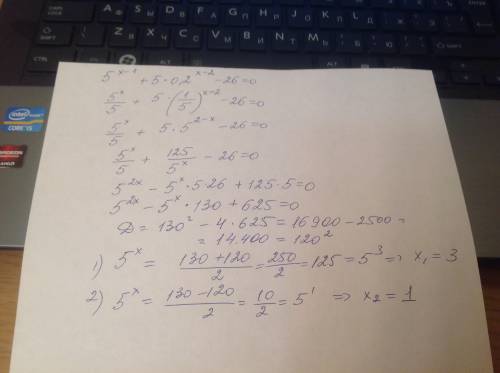 5^{x-1} + 5 · 0,2^{x-2} - 26 = 0
5^x/5 + 5 · (1/5)^{x-2} - 26 = 0
5^x/5 + 5 · 5^{2-x} - 26 = 0
5^x/5 + 125/5^x - 26 = 0
5^{2x} - 5^x · 5 · 26 + 125 · 5 = 0
5^{2x} - 5^x · 130 + 625 = 0
Д = 130² - 4 · 625 = 16900 - 2500 =
= 14.400 = 120²
1) 5^x = (130 + 120)/2 = 250/2 = 125 = 5³ => x₁ = 3
2) 5^x = (130 - 120)/2 = 10/2 = 5¹ => x₂ = 1
intel
CORE i5
AMD
RADEON
CTRL
ALT